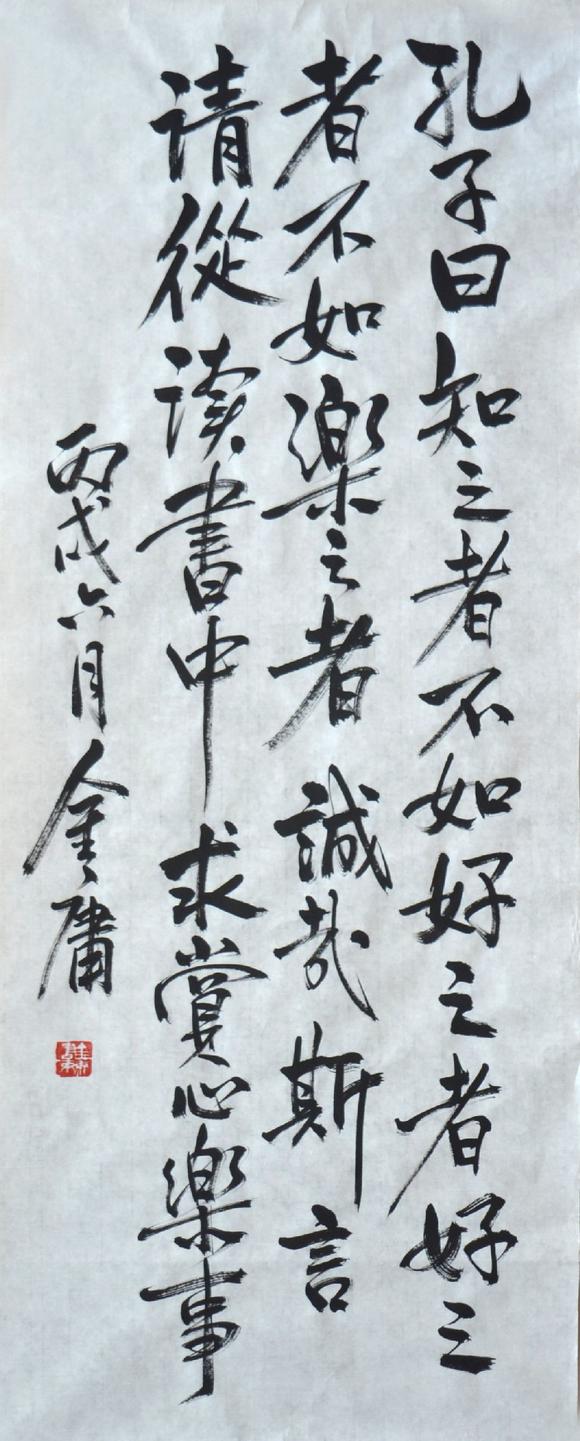 孔子曰知之者不如好之者好之
者不如樂之者誠哉斯言
请從读書中求賞心樂事
丙戌六月金庸